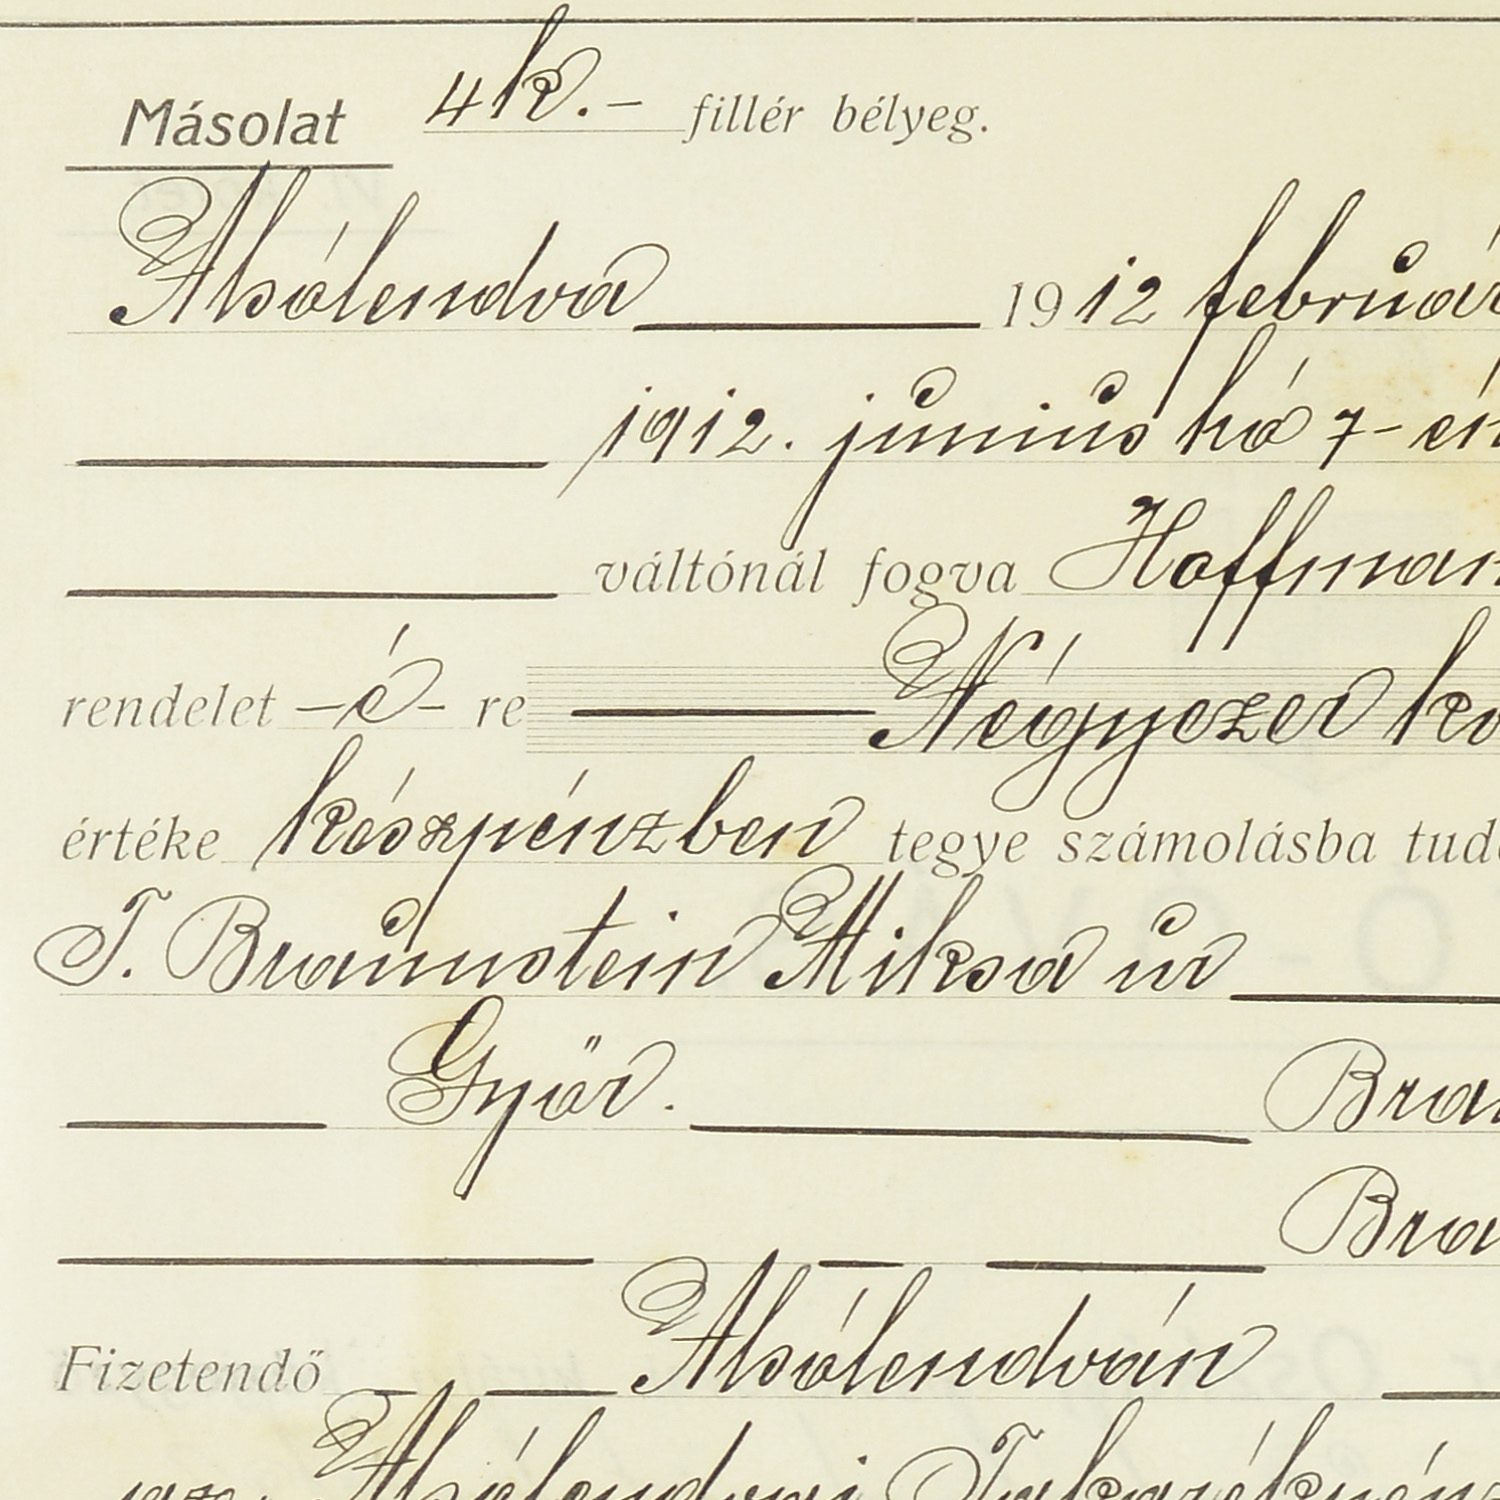 Másolat 4k.- fillér bélyeg.
Alsólendva 1912 február
1912. június hó 7-én
váltónál fogva Hoffman
rendelet -é- re Négyezer ko
értéke készpénzben tegye számolásba tud
T. Braunstein Miksa úr
Győr. Bra
Bra
Fizetendő Alsólendván
Alsólendvai Takarékpén